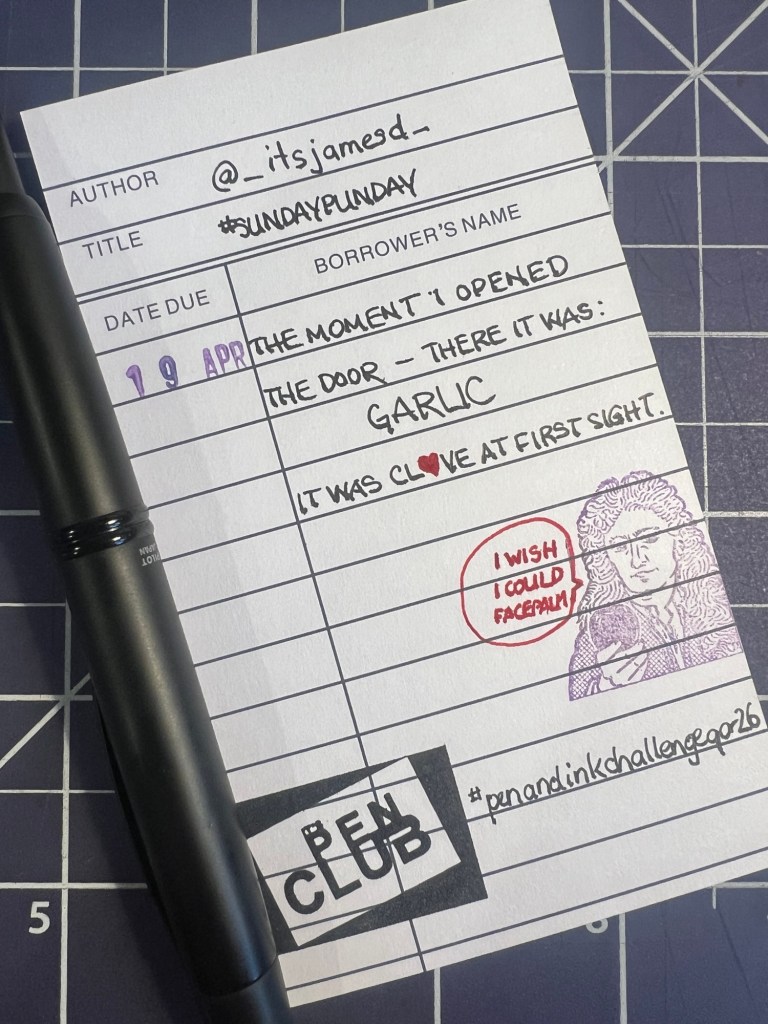 AUTHOR @_itsjamesd_
TITLE #SUNDAYPUNDAY
DATE DUE BORROWER'S NAME
19 APR THE MOMENT I OPENED
THE DOOR – THERE IT WAS:
GARLIC
IT WAS CL♥VE AT FIRST SIGHT.
I WISH
I COULD
FACEPALM
#penandinkchallengeqpr26
PEN
CLUB
PILOT
JAPAN
5
6